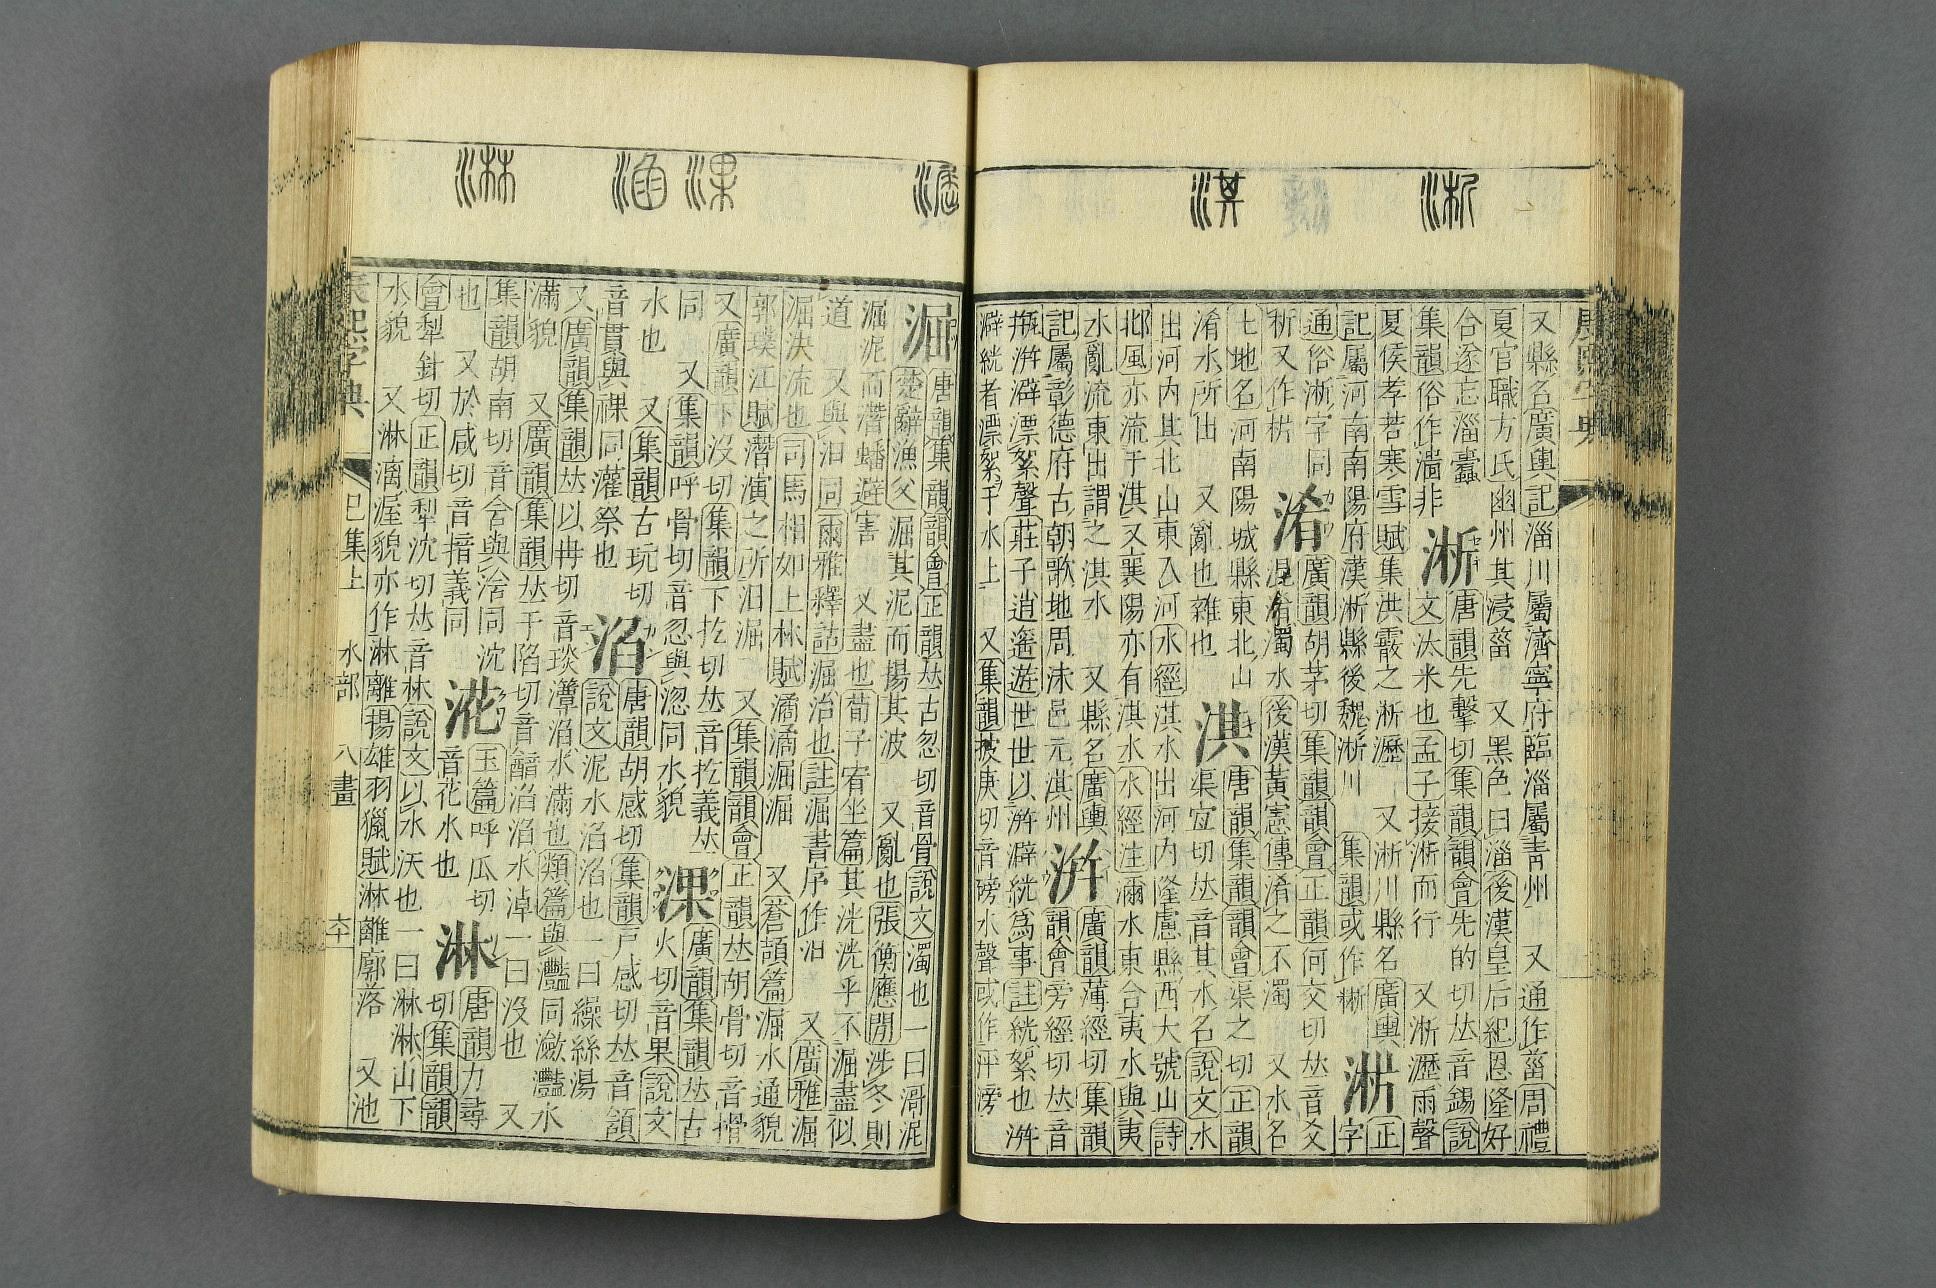 淅
淇
康熙字典
又縣名廣輿記淄川屬濟寧府臨淄屬青州 又通作菑周禮
夏官職方氏幽州其浸菑 又黑色曰淄後漢皇后紀恩隆好
合遂忘淄蠹 淅 唐韻先擊切集韻韻會先的切𠀤音錫說
集韻俗作湽非 文汰米也孟子接淅而行 又淅瀝雨聲
夏侯孝若寒雪賦集洪霰之淅瀝 又淅川縣名廣輿 正
記屬河南南陽府漢淅縣後魏淅川 集韻或作 字
通俗淅字同 淆 廣韻胡茅切集韻韻會正韻何交切𠀤音爻
析又作 混淆濁水後漢黃憲傳淆之不濁 又水名
七地名河南陽城縣東北山 淇 唐韻集韻韻會渠之切正韻
淆水所出 又亂也雜也 渠宜切𠀤音其水名說文水
出河內其北山東入河水經淇水出河內隆慮縣西大號山詩
邶風亦流于淇又襄陽亦有淇水水經注濔水東合夷水與夷
水亂流東出謂之淇水 又縣名廣輿 洴 廣韻薄經切集韻
記屬彰德府古朝歌地周沬邑元淇州 韻會旁經切𠀤音
瓶洴澼漂絮聲莊子逍遙遊世世以洴澼絖爲事註絖絮也洴
澼絖者漂絮于水上 又集韻披庚切音磅水聲或作泙滂
淈
淉
淊
淋
淈 唐韻集韻韻會正韻𠀤古忽切音骨說文濁也一曰滒泥
楚辭漁父淈其泥而揚其波 又亂也張衡應閒涉冬則
淈泥而潛蟠避害 又盡也荀子宥坐篇其洸洸乎不淈盡似
道 又與汩同爾雅釋詁淈治也註淈書序作汩 又廣雅淈
淈決流也司馬相如上林賦潏潏淈淈 又蒼頡篇淈水通貌
郭璞江賦潛演之所汩淈 又集韻韻會正韻𠀤胡骨切音搰
又廣韻下沒切集韻下扢切𠀤音扢義𠀤
同 又集韻呼骨切音忽與淴同水貌 淉 廣韻集韻𠀤古
火切音果說文
水也 又集韻古玩切 淊 唐韻胡感切集韻戸感切𠀤音頷
音貫與祼同灌祭也 說文泥水淊淊也一曰繅絲湯
又廣韻集韻𠀤以冉切音琰灊淊水滿也類篇與灩同瀲灩水
滿貌 又廣韻集韻𠀤于陷切音韽淊水淖一曰沒也 又
集韻胡南切音含與浛同沈 㳸 玉篇呼瓜切 淋 唐韻力尋
也 又於咸切音揞義同 音花水也 切集韻韻
會犁針切正韻犁沈切𠀤音林說文以水沃也一曰淋淋山下
水貌 又淋漓渥貌亦作淋離揚雄羽獵賦淋離廓落 又池
康熙字典 巳集上 水部 八畫